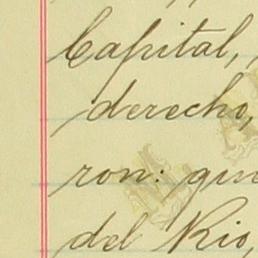 Capital,
derecho,
ron: que
del Rio,